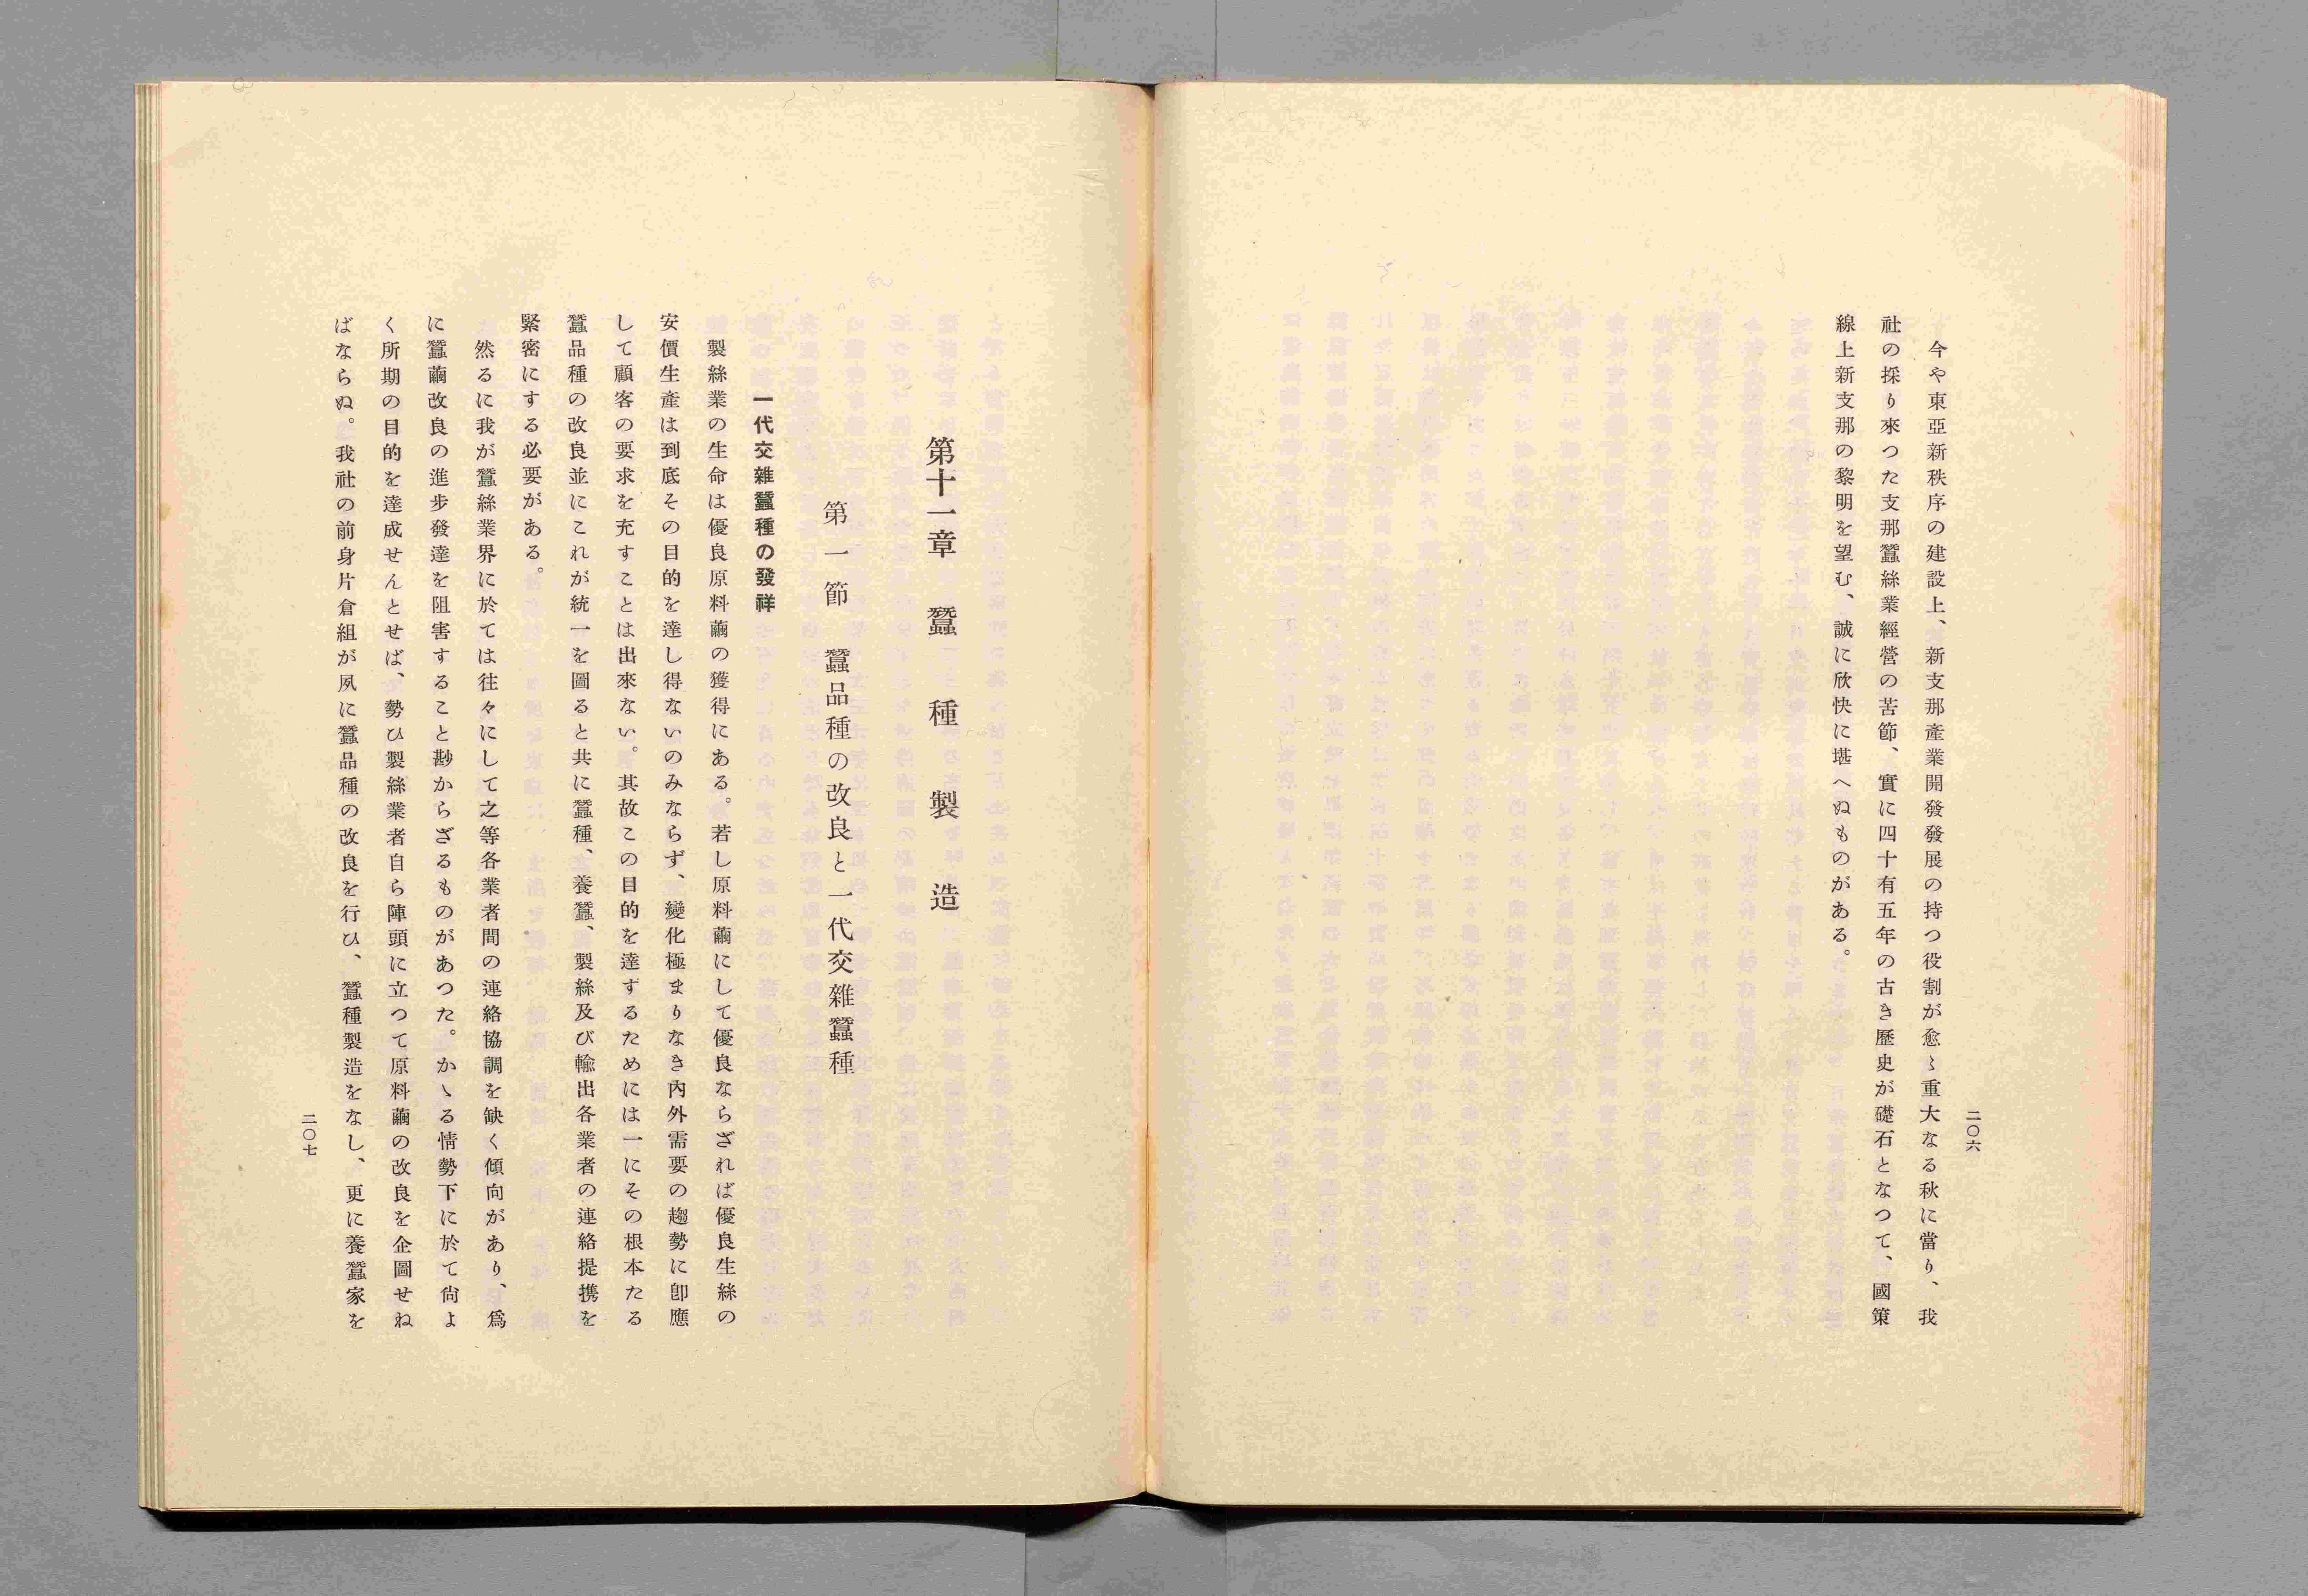 二〇六
今や東亞新秩序の建設上、新支那產業開發發展の持つ役割が愈〻重大なる秋に當り、我
社の採り來つた支那蠶絲業經營の苦節、實に四十有五年の古き歷史が礎石となつて、國策
線上新支那の黎明を望む、誠に欣快に堪へぬものがある。
第十一章　蠶種製造
第一節　蠶品種の改良と一代交雜蠶種
一代交雜蠶種の發祥
製絲業の生命は優良原料繭の獲得にある。若し原料繭にして優良ならざれば優良生絲の
安價生產は到底その目的を達し得ないのみならず、變化極まりなき內外需要の趨勢に卽應
して顧客の要求を充すことは出來ない。其故この目的を達するためには一にその根本たる
蠶品種の改良並にこれが統一を圖ると共に蠶種、養蠶、製絲及び輸出各業者の連絡提携を
緊密にする必要がある。
然るに我が蠶絲業界に於ては往々にして之等各業者間の連絡協調を缺く傾向があり、爲
に蠶繭改良の進步發達を阻害すること尠からざるものがあつた。かゝる情勢下に於て尙よ
く所期の目的を達成せんとせば、勢ひ製絲業者自ら陣頭に立つて原料繭の改良を企圖せね
ばならぬ。我社の前身片倉組が夙に蠶品種の改良を行ひ、蠶種製造をなし、更に養蠶家を
二〇七